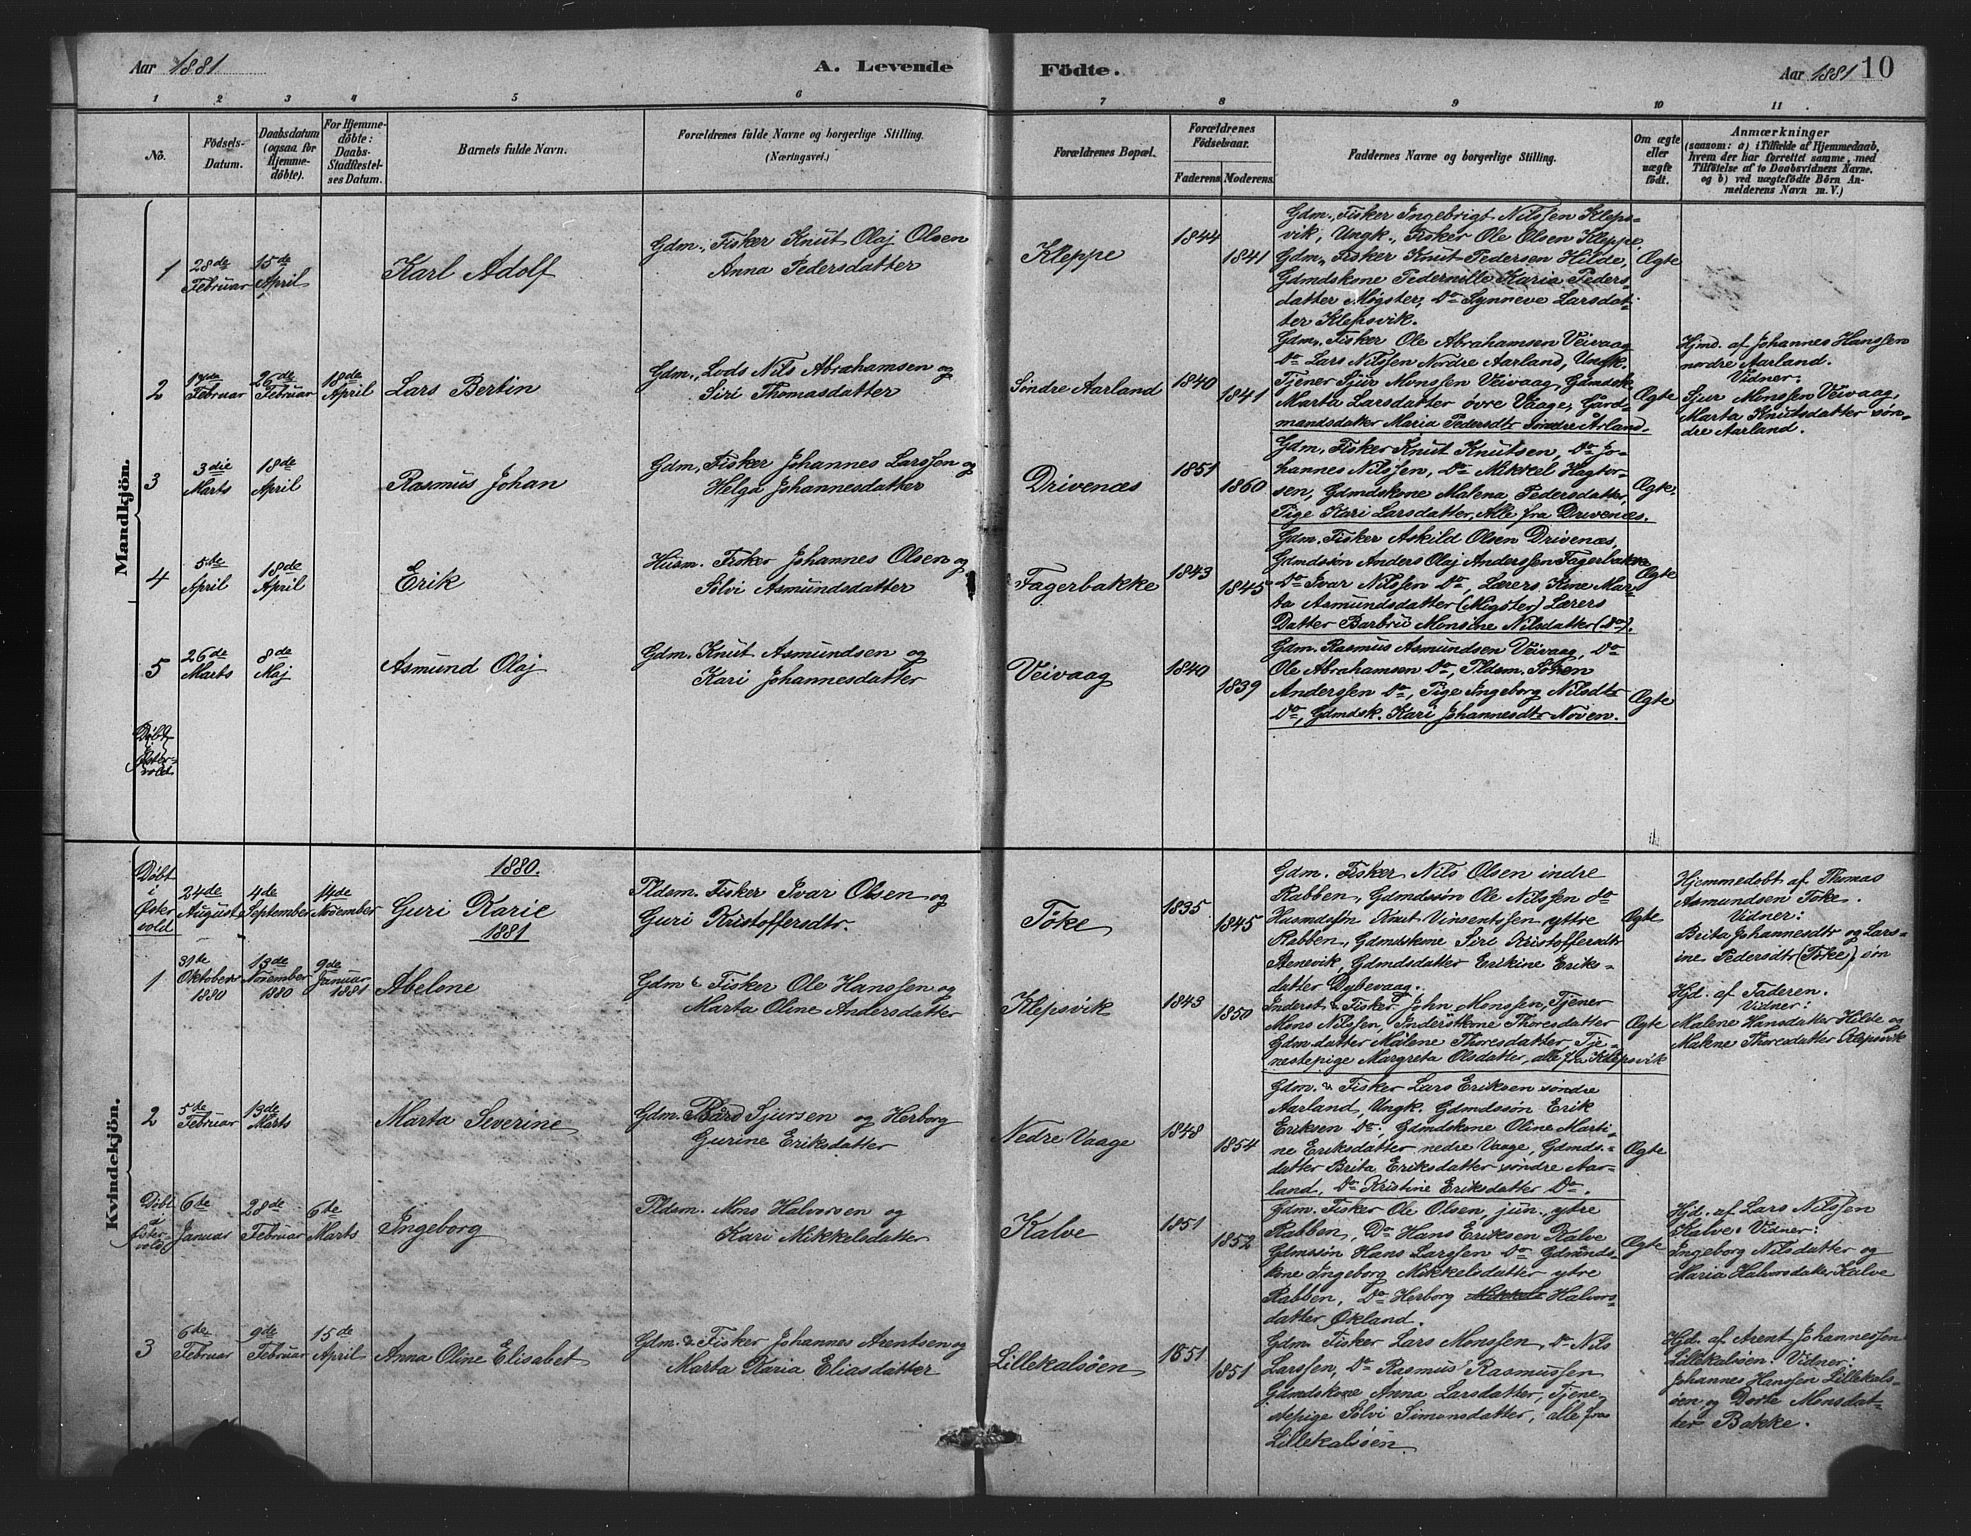 Aar 1881
A. Levende
Födte.
Aar 1881 10
1 2 3 4 5 6 7 8 9 10 11
No.
Födsels-
Datum.
Daabsdatum
(ogsaa for
Hjemme-
döbte).
For Hjemme-
döbte:
Daabs-
Stadfæstel-
ses Datum.
Barnets fulde Navn.
Forældrenes fulde Navne og borgerlige Stilling.
(Næringsvei.)
Forældrenes Bopæl.
Forældrenes
Födselsaar.
Faderens. Moderens.
Faddernes Navne og borgerlige Stilling.
Om ægte
eller
uægte
födt.
Anmærkninger
(saasom: a) i Tilfælde af Hjemmedaab,
hvem der har forrettet samme, med
Tilföielse af to Daabsvidners Navne.
og b) ved uægtefödte Börn An-
melderens Navn m. V.)
Mandkjön.
1
28de
Februar
15de
April
Karl Adolf
Gdm., Fisker Knut Olaj Olsen
Anna Pedersdatter
Kleppe
1844
1841
Gdm., Fisker Ingebrigt Nilssen Kleps-
vik, Ungk., Fisker Ole Olsen Kleppe,
Gdm., Fisker Knut Pedersen Hilde,
Gdmdskone Pedernille Karia Peders-
datter Møgster, Do Synneve Larsdat-
ter Klepsvik.
Ægte
2
17de
Februar
26de
Februar
18de
April
Lars Bertin
Gdm., Lods Nils Abrahamsen og
Siri Thomasdatter
Sindre Aarland
1840
1841
Gdm., Fisker Ole Abrahamsen Veivaag
Do Lars Nilssen Nordre Aarland, Ungk.
Tjener Sjur Monssen Veivaag, Gdmdsk.
Marta Larsdatter øvre Vaage, Gård-
mandsdatter Maria Pedersdtr Søndre Årland.
Ægte
Hjmd. af Johannes Hanssen
nordre Aarland.
Vidner:
Sjur Monssen Veivaag,
Marta Knutsdatter søn-
dre Aarland.
3
3die
Marts
18de
April
Rasmus Johan
Gdm., Fisker Johannes Larssen og
Helga Johannesdatter
Drivenæs
1851
1860
Gdm., Fisker Knut Knutsen, Do Jo-
hannes Nilssen, Do Mikkel Hagtor-
sen, Gdmdskone Malena Pedersdatter,
Pige Kari Larsdatter, Alle fra Drivenæs.
Ægte.
4
5te
April
18de
April
Erik
Husm. Fisker Johannes Olsen og
Sølvi Asmundsdatter
Fagerbakke
1843
1845
Gdm. Fisker Askild Olsen Drivenæs,
Gdmdsøn Anders Olaj Anderssen Fagerbakke
Do Ivar Nilssen Do, Lærers Kone Mar-
ta Asmundsdatter (Møgster) Lærers
Datter Barbru Monsine Nilsdatter (Do).
Ægte
5
26de
Marts
8de
Maj
Asmund Olaj
Gdm. Knut Asmundsen og
Kari Johannesdatter
Veivaag
1840
1839
Gdm. Rasmus Asmundsen Veivaag, Do
Ole Abrahamsen Do, Pldsm. Søren
Anderssen Do, Pige Ingeborg Nilsdtr
Do, Gdmdsk. Kari Johannesdtr Noven.
Ægte
Døbt
i
Øster-
vold
Kvindekjön.
1880.
Døbt
i
Øster
vold
24de
August
4de
September
14de
November
Guri Karie
Pldsm. Fisker Ivar Olsen og
Guri Kristoffersdtr.
Töke
1835
1845
Gdm. Fisker Nils Olsen indre
Rabben, Gdmdssön Ole Nilssen do
Husmdsøn Knut Vinsentssen yttre
Rabben, Gdmdskone Siri Kristoffersdtr
Stenevik, Gdmdsdatter Erikine Eriks-
datter Dybevaag.
Ægte
Hjemmedøbt af Thomas
Asmundsen Töke.
Vidner:
Brita Johannesdtr og Lars-
ine Pedersdtr (Töke)
1881
1
31te
Oktober
1880
13de
November
1880
9de
Januar
1881
Abelone
Gdm & Fisker Ole Hanssen og
Marta Oline Andersdatter
Klepsvik
1843
1850
Inderst & Fisker John Monssen, Tjener
Mons Nilssen, Inderstkone Thoresdatter
Gdm.datter Malene Thoresdatter, Tje-
nestepige Margreta Olsdatter, alle fra Klepsvik
Ægte
Hjd. af Faderen.
Vidner:
Malene Hansdatter Hilde og
Malene Thoresdatter Klepsvik
2
5te
Februar
13de
Marts
Marta Severine
Gdm. Bård Sjursen og Herborg
Gurine Eriksdatter
Nedre Vaage
1848
1854
Gdm. & Fisker Lars Eriksen søndre
Aarland, Ungk. Gdmdssön Erik
Eriksen Do, Gdmdskone Oline Marti-
ne Eriksdatter nedre Vaage, Gdmds-
datter Brita Eriksdatter søndre Aar-
land, Do Kristine Eriksdatter Do.
Ægte
Døbt
i
Øster-
vold
6te
Januar
28de
Februar
6te
Marts
Ingeborg
Pldsm. Mons Halvorsen og
Kari Mikkelsdatter
Kalve
1851
1852
Gdm. Fisker Ole Olsen, jun. ytre
Rabben, Do Hans Eriksen Kalve
Gdmssön Hans Larssen Do Gdmds-
kone Ingeborg Mikkelsdatter ytre
Rabben, Do Herborg Halvors-
datter Økland.
Ægte
Hjd. af Lars Nilssen
Kalve. Vidner:
Ingeborg Nilsdatter og
Maria Halvorsdatter Kalve
3
6te
Februar
9de
Februar
15de
April
Anna Oline Elisabet
Gdm. & Fisker Johannes Arentsen og
Marta Karia Eliasdatter
Lillekalsöen
1851
1851
Gdm. Fisker Lars Monssen, Do Nils
Larssen, Do Rasmus Rasmussen
Gdmdskone Anna Larsdatter, Tjene-
stepige Sølvi Simonsdatter, alle fra
Lillekalsöen.
Hjd. af Arent Johannessen
Lillekalsöen. Vidner:
Johannes Hanssen Lillekals-
öen og Dorte Monsdat-
ter Bakke.